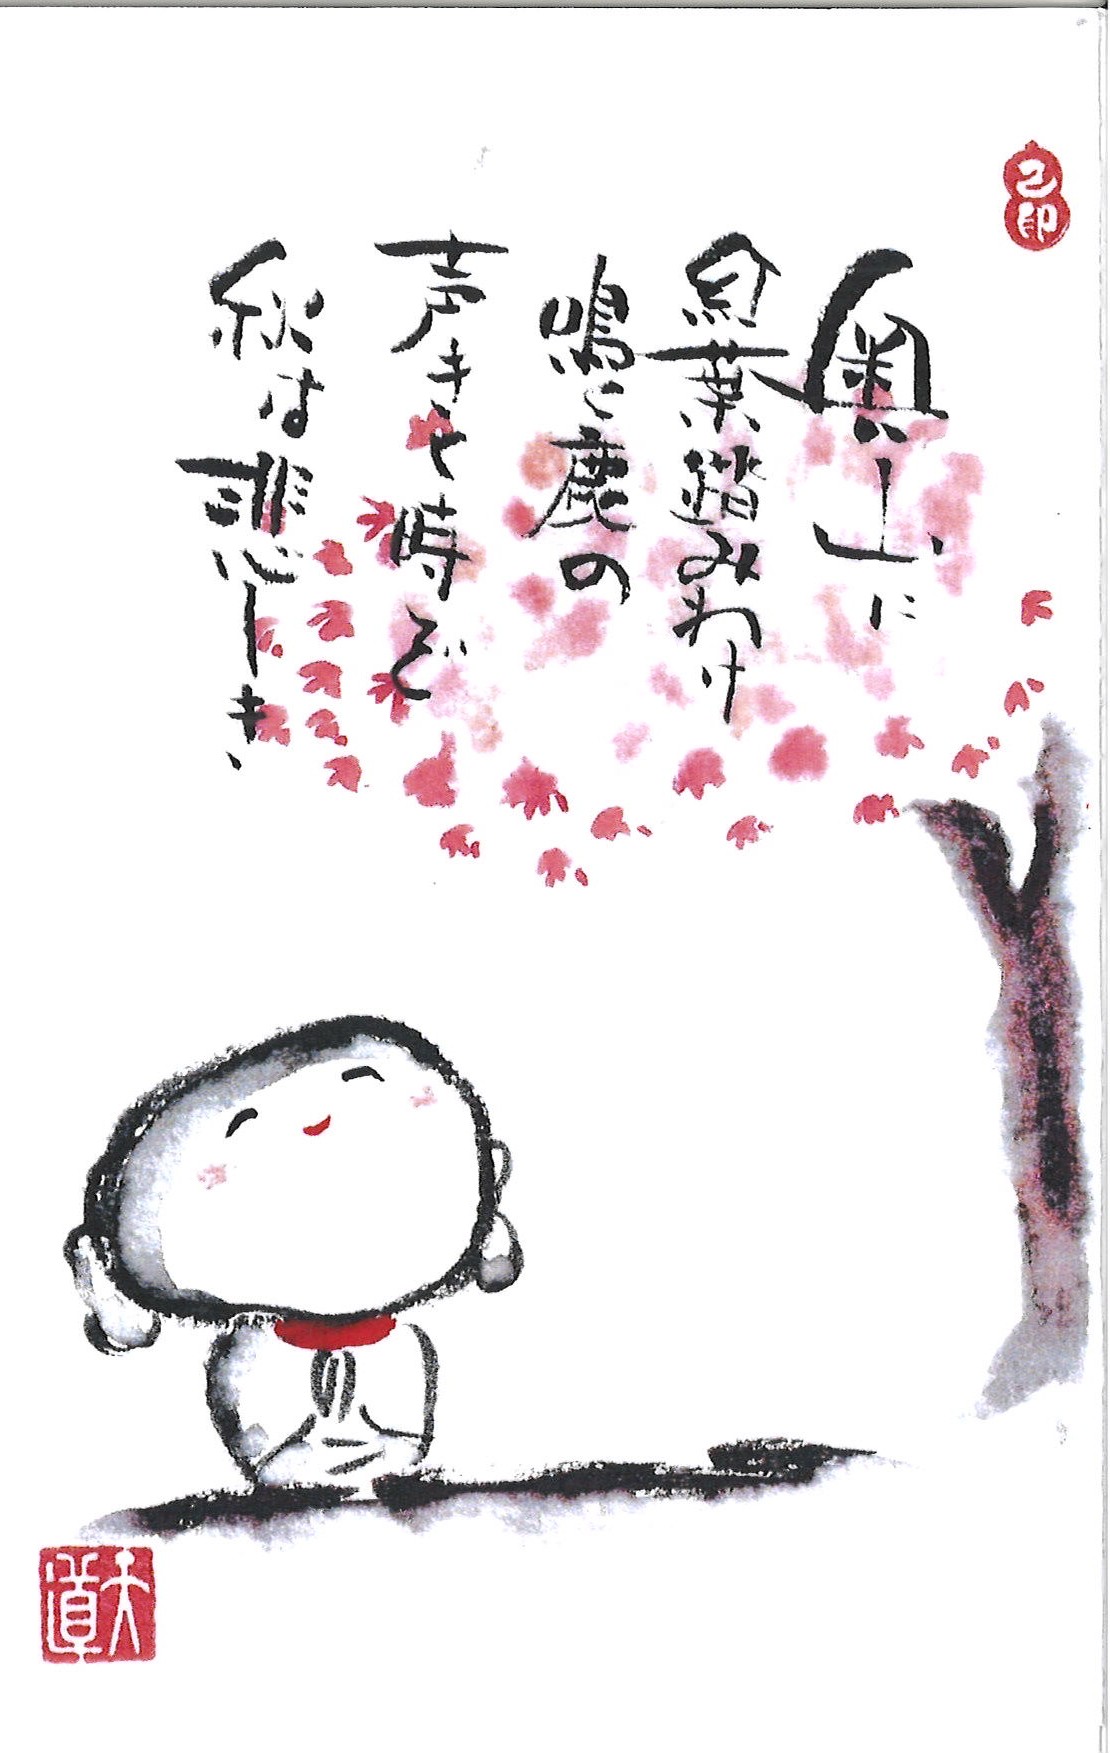 奥山に
紅葉踏みわけ
鳴く鹿の
声きく時ぞ
秋は悲しき
天道